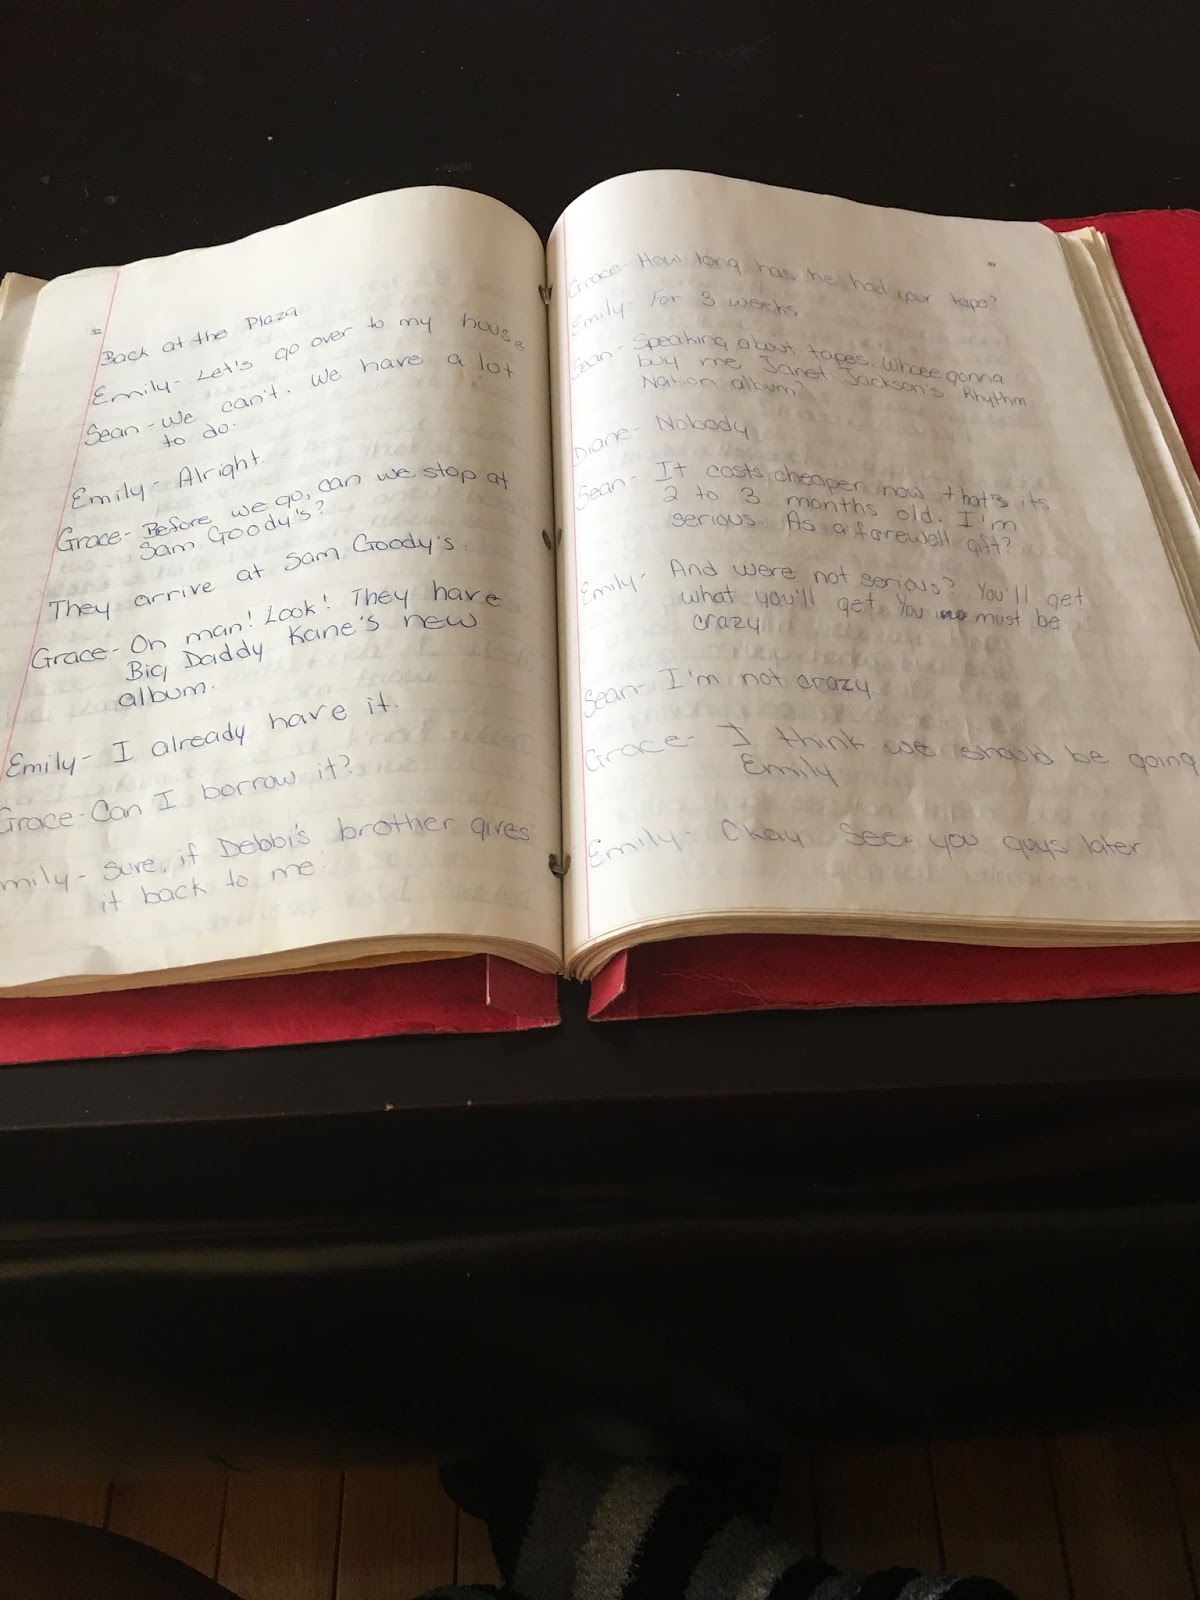 Back at the Plaza
Emily- Let's go over to my house
Sean- We can't. We have a lot
to do.
Emily- Alright.
Grace- Before we go, can we stop at
Sam Goody's?
They arrive at Sam Goody's.
Grace- Oh man! Look! They have
Big Daddy Kane's new
album.
Emily- I already have it.
Grace- Can I borrow it?
Emily- Sure, if Debbi's brother gives
it back to me.
Grace- How long has he had your tape?
Emily- For 3 weeks.
Sean- Speaking about tapes. Whose gonna
buy me Janet Jackson's Rhythm
Nation album?
Diane- Nobody
Sean- It costs cheaper now that's its
2 to 3 months old. I'm
serious. As a farewell gift?
Emily- And were not serious? You'll get
what you'll get. You must be
crazy.
Sean- I'm not crazy.
Grace- I think we should be going
Emily
Emily- Okay See you guys later.